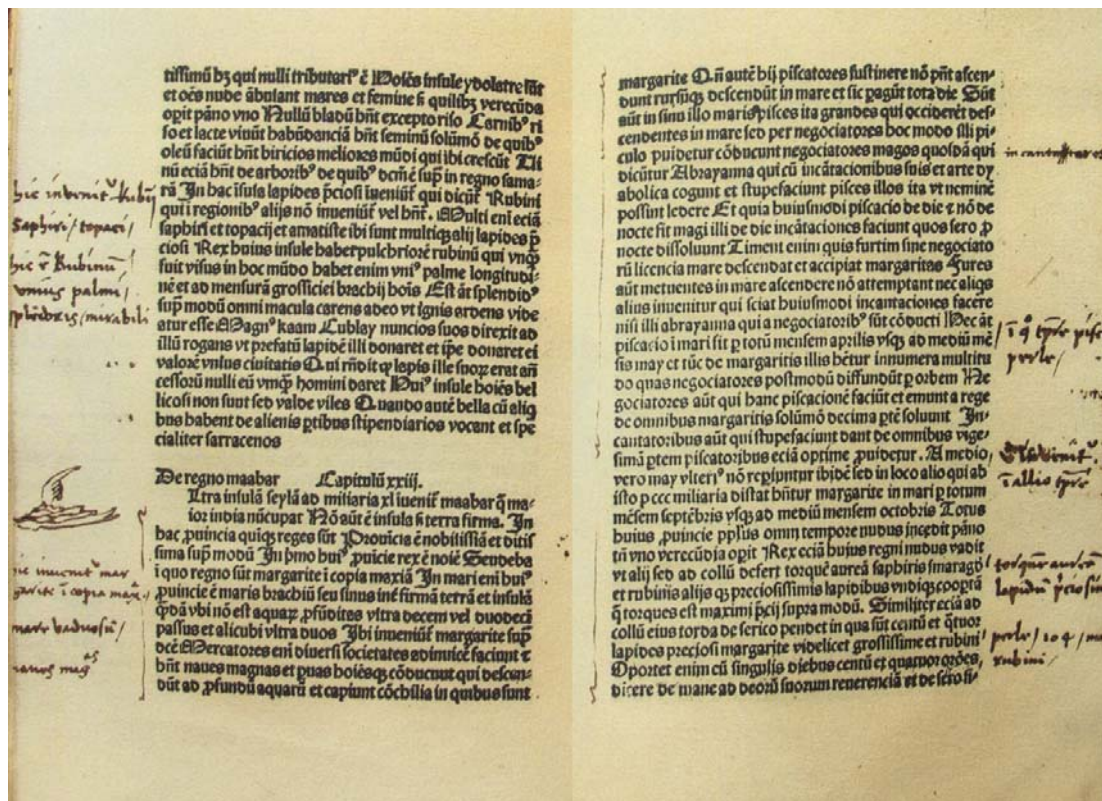 tissimū bʒ qui nulli tributariꝰ ē Hoīes insule ydolatre sūt
et oēs nude ābulant mares et femine sꝫ quilibꝫ verecūda
opit pāno vno Nullū bladū hn̄t excepto riso Carnibꝰ ri
so et lacte viuūt habūdanciā hn̄t seminū solūmō de quibꝰ
oleū faciūt hn̄t biricios meliores mūdi qui ibi crescūt Ui
nū eciā hn̄t de arboribꝰ de quibꝰ dcm̄ ē sup̄ in regno sama-
rā In hac īsula lapides p̄ciosi īueniūt̉ qui dicūt̉ Rubini
qui ī regionibꝰ alijs nō inueniūt̉ vel hn̄t̉. Multi eni eciā
saphiri et topacij et amatiste ibi sunt multiqꝫ alij lapides p̄
ciosi Rex huius insule habet pulchriorē rubinū qui vnqꝫ
fuit visus in hoc mūdo habet enim vniꝰ palme longitudi-
nē et ad mensurā grossiciei brachij hoīs Est āt splendidꝰ
sup̄ modū omni macula carens adeo vt ignis ardens vide
atur esse Magnꝰ kaam Cublay nuncios suos direxit ad
illū rogans vt prefatū lapidē illi donaret et ip̄e donaret ei
valorē vnius ciuitatis Qui rn̄dit ꝙ lapis ille suoꝝ erat an̄
cessorū nulli eū vmqꝫ homini daret Huiꝰ insule hoīes bel
licosi non sunt sed valde viles Quando autē bella cū aliq
bus habent de alienis ꝑtibus stipendiarios vocant et spe
cialiter sarracenos
De regno maabar Capitulū xxiij.
Ltra insulā seylā ad miliaria xl īuenit̉ maabar q̄ ma-
ior india nūcupat̉ Nō aūt ē insula sꝫ terra firma. In
hac ꝓuincia quiqꝫ reges sūt Prouicia ē nobilissīa et ditis
sima sup̄ modū In p̄mo huiꝰ ꝓuicie rex ē noīe Sendeba
ī quo regno sūt margarite ī copia maxīa In mari eni huiꝰ
ꝓuincie ē maris brachiū seu sinus int̉ firmā terrā et insulā
q̄dā vbi nō est aquaꝝ ꝓfūditas vltra decem vel duodeci
passus et alicubi vltra duos Ibi inueniūt̉ margarite sup̄
dcē Mercatores eni diuersi societates adinuicē faciunt ⁊
hn̄t naues magnas et ꝑuas hoīesqꝫ cōducunt qui descen-
dūt ad ꝓfundū aquarū et capiunt cōchilia in quibus sunt
hic invenit̉ Rubij
Saphiri / topaci /
hic ē Rubinū /
vnius palmi /
splēdoris / mirabili
margarite ī copia
mare vadosū /
margarite Qn̄ autē hij piscatores sustinere nō pn̄t ascen-
dunt rursūqꝫ descendūt in mare et sic ꝑagūt tota die Sūt
aūt in sinu illo maris pisces ita grandes qui occiderēt des-
cendentes in mare sed per negociatores hoc modo illi pi-
culo ꝓuidetur cōducunt negociatores magos quosdā qui
dicūtur Abrayanna qui cū incātacionibus suis et arte dy
abolica cogunt et stupefaciunt pisces illos ita vt neminē
possint ledere Et quia huiusmodi piscacio de die ⁊ nō de
nocte fit magi illi de die incātaciones faciunt quos sero ꝓ
nocte dissoluunt Timent enim quis furtim sine negociato
rū licencia mare descendat et accipiat margaritas Fures
aūt metuentes in mare ascendere nō attemptant nec aliqs
alius inuenitur qui sciat huiusmodi incantaciones facere
nisi illi abrayanna qui a negociatoribꝰ sūt cōducti Hec āt
piscacio ī mari fit ꝑ totū mensem aprilis vsqꝫ ad mediū mē
sis may et tūc de margaritis illis hētur innumera multitu
do quas negociatores postmodū diffundūt ꝑ orbem Ne
gociatores aūt qui hanc piscacionē faciūt et emunt a rege
de omnibus margaritis solūmō decima ꝑtē soluunt In-
cantatoribus aūt qui stupefaciunt dant de omnibus vige-
simā ꝑtem piscatoribus eciā optime ꝓuidetur. A medio
vero may vlteriꝰ nō reꝑiuntur ibidē sed in loco alio qui ab
isto ꝑ ccc miliaria distat hn̄tur margarite in mari ꝑ totum
mēsem septēbris vsqꝫ ad mediū mensem octobris Totus
huius ꝓuincie pplꝰs omni tempore nudus incedit pāno
tn̄ vno verecūdia opit Rex eciā hujus regni nudus vadit
vt alij sed ad collū defert torquē aureā saphiris smaragd̕
et rubinis alijsqꝫ preciosissimis lapidibus vndiqꝫ coopt̄ā
q̄ torques est maximi p̄cij supra modū. Similiter eciā ad
collū eius torda de serico pendet in qua sūt centū et q̄tuor
lapides preciosi margarite videlicet grossissime et rubini
Oportet enim cū singulis diebus centū et quatuor oroēs,
dicere de mane ad deorū suorum reuerenciā et de sero si-
ī quo tp̄re pisc
perle /
ī allio tp̄re
torquē aureā
lapidū p̄ciosiū
perle / 104 /
rubini /